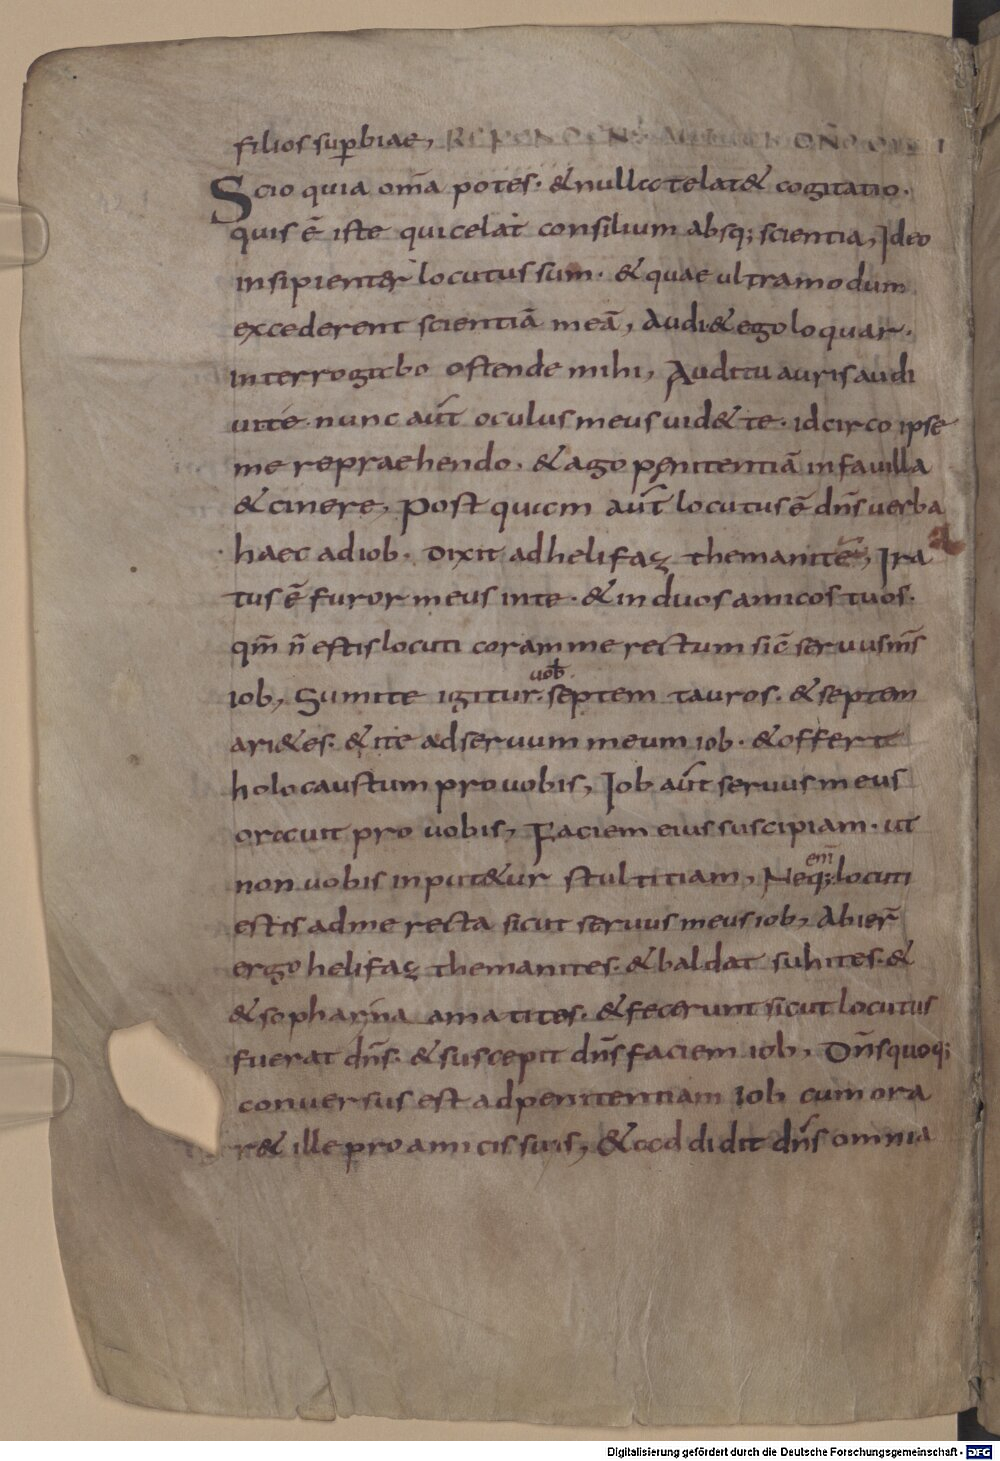 filios sup̄biae, RESPONDENS AUTEM IOB DÑO DIXIT
Scio quia om̄a potes· & nulla te lat& cogitatio·
quis ē iste qui celat consilium absq; scientia, Ideo
insipienter locutus sum· & quae ultra modum
excederent scientiā meā, Audi & ego loquar·
interrogabo ostende mihi, Auditu auris audi
ui te· nunc aūt oculus meus uid& te· idcirco ipse
me repraehendo· & ago pęnitentiā in fauilla
& cinere, Post quam aūt locutus ē dn̄s uerba
haec ad iob· dixit ad helifaz themanitē, Ira
tus ē furor meus in te· & in duos amicos tuos·
qm̄ n̄ estis locuti coram me rectum sic̄ seruus m̄s
iob, Sumite igitur· uob̄ septem tauros· & septem
ari&es· & ite ad seruum meum iob· & offerte
holocaustum pro uobis, Iob aūt seruus meus
orauit pro uobis, Faciem eius suscipiam· ut
non uobis input&ur stultitiam, Neq; em̄ locuti
estis ad me recta sicut seruus meus iob, Abier̄
ergo helifaz themanites· & baldat suhites· &
& sophar ina amatites· & fecerunt sicut locutus
fuerat dn̄s· & suscepit dn̄s faciem iob, Dn̄s quoq;
conuersus est ad penitentiam iob cum ora
r& ille pro amicis suis, & addidit dn̄s omnia
Digitalisierung gefördert durch die Deutsche Forschungsgemeinschaft - DFG